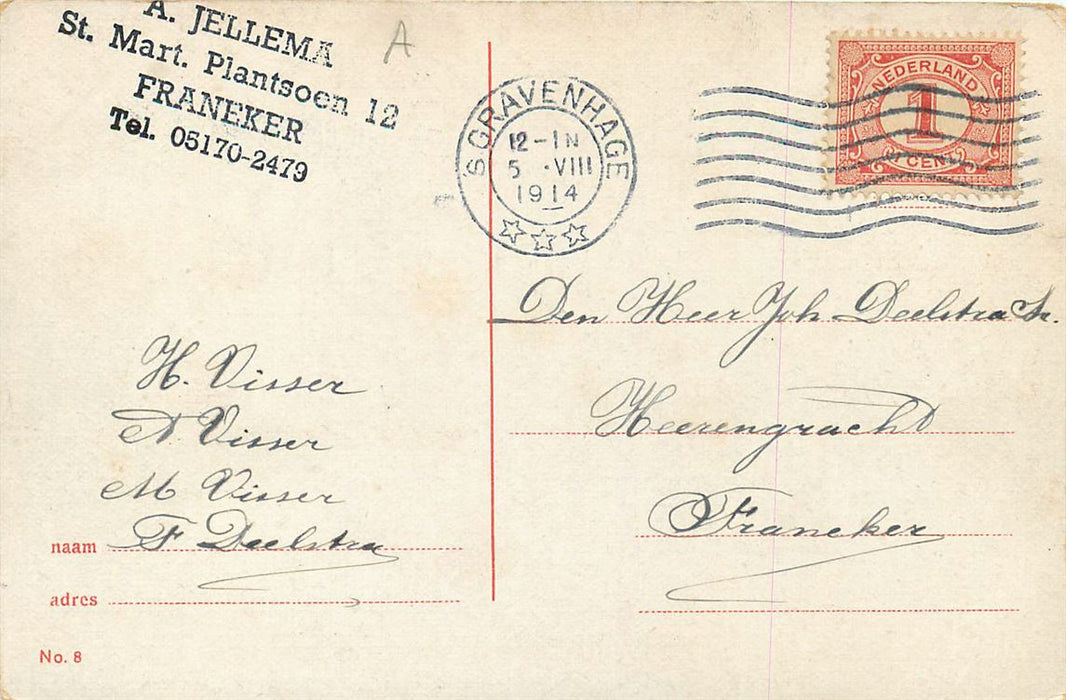 A. JELLEMA
St. Mart. Plantsoen 12
FRANEKER
Tel. 05170-2479
A
SGRAVENHAGE
12-1N
5 .VIII
1914
NEDERLAND
1
CENT
Den Heer Joh. Deelstra Sr.
Heerengracht
Franeker
H. Visser
A Visser
M Visser
F Deelstra
naam
adres
No. 8